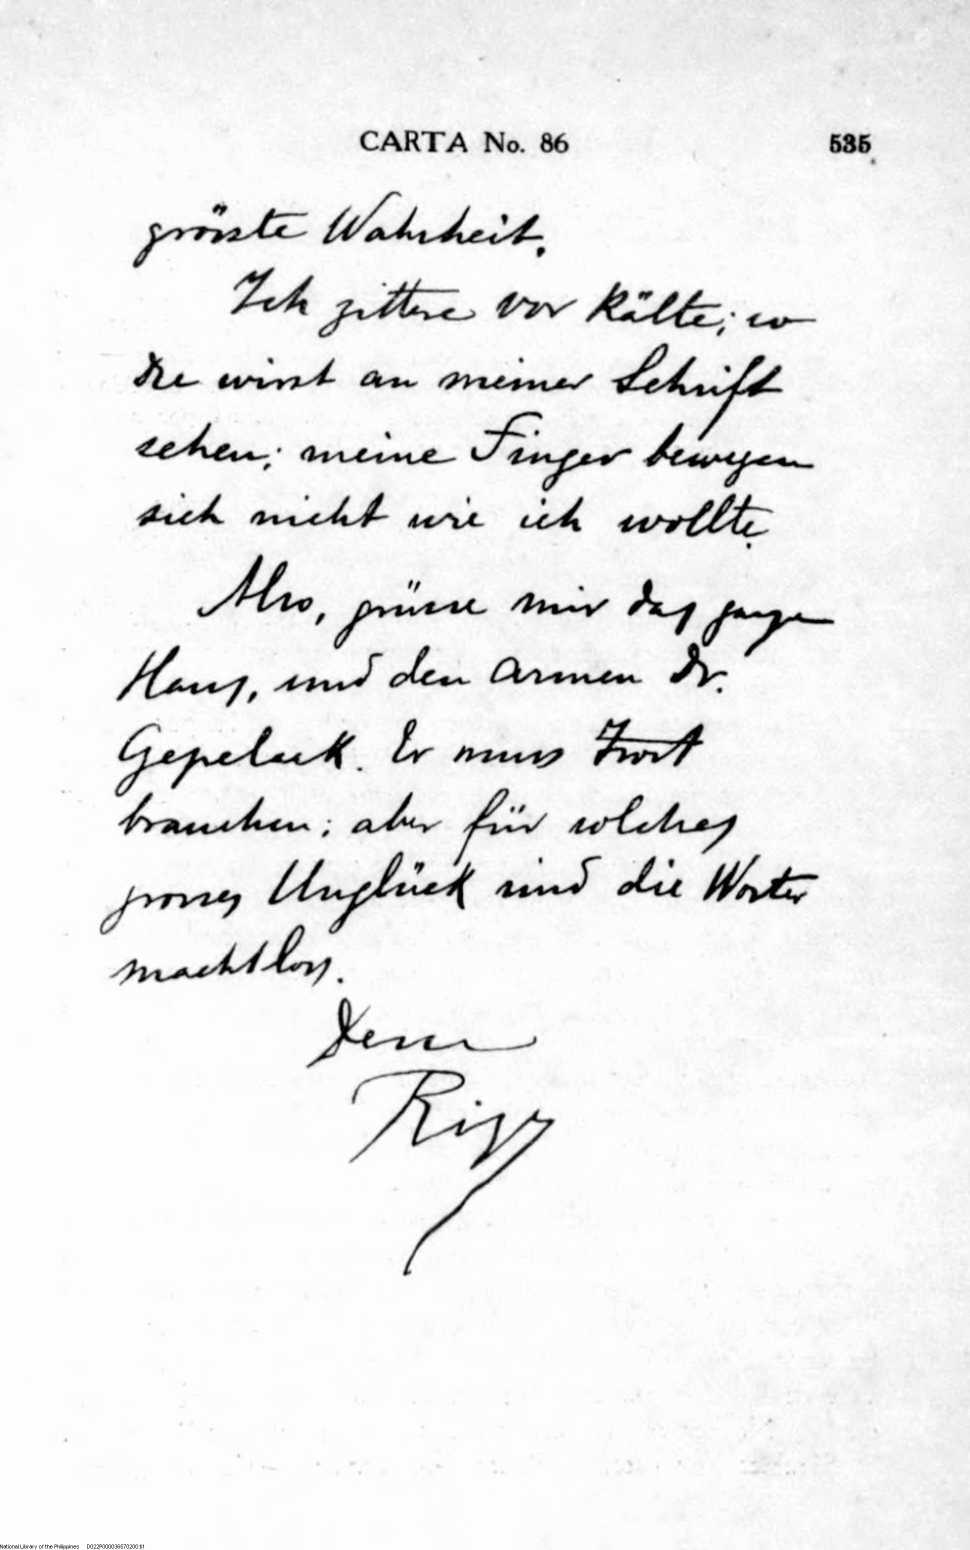 CARTA No. 86 535
grösste Wahrheit.
Ich zittere vor Kälte; so
Du wirst an meiner Schrift
sehen; meine Finger bewegen
sich nicht wie ich wollte.
Also, grüsse mir das ganze
Haus, und den armen Dr.
Gepeback. Er muss Trost
brauchen; aber für solches
grosses Unglück sind die Worter
machtlos.
Dein
Rizal
National Library of the Philippines D022P00003667020001